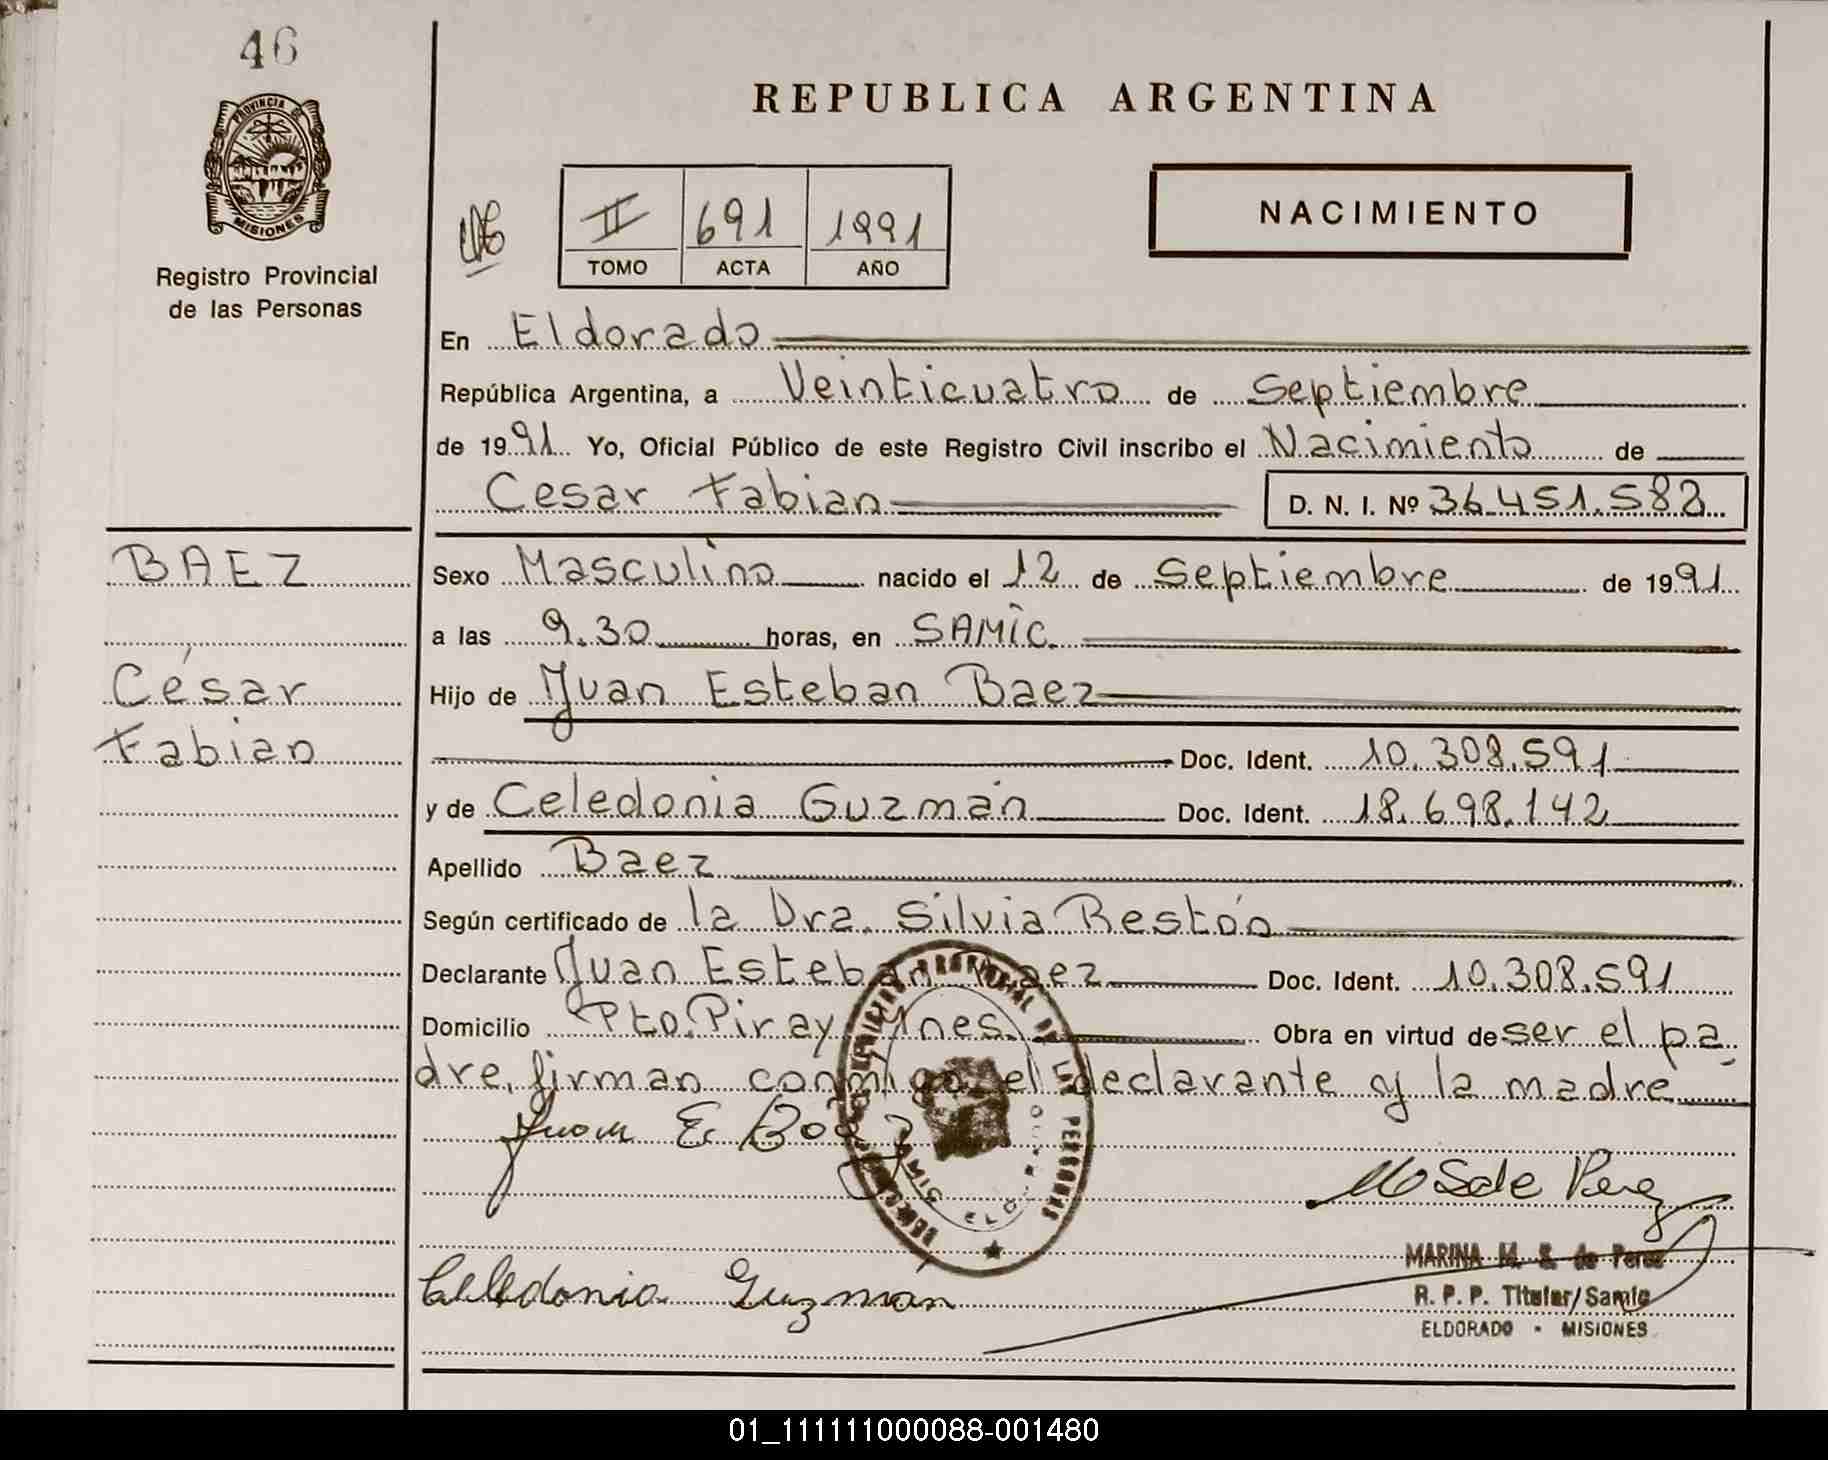 46
PROVINCIA DE
MISIONES
Registro Provincial
de las Personas
REPUBLICA ARGENTINA
II 691 1991
TOMO ACTA AÑO
NACIMIENTO
En Eldorado
República Argentina, a Veinticuatro de Septiembre
de 1991 Yo, Oficial Público de este Registro Civil inscribo el Nacimiento de
Cesar Fabian D. N. I. Nº 36.451.582
BAEZ
César
Fabian
Sexo Masculino nacido el 12 de Septiembre de 1991
a las 9.30 horas, en SAMIC.
Hijo de Juan Esteban Baez
Doc. Ident. 10.308.591
y de Celedonia Guzmán Doc. Ident. 18.698.142
Apellido Baez
Según certificado de la Dra. Silvia Restón
Declarante Juan Esteban Baez Doc. Ident. 10.308.591
Domicilio Pto. Piray Mnes. Obra en virtud de ser el pa-
dre, firman conmigo el declarante y la madre
Juan E. Baez
PROVINCIAL DE LAS PERSONAS
M S de Perez
MARINA M. S. de Perez
R. P. P. Titular/Samic
ELDORADO - MISIONES
Celedonia Guzman
01_111111000088-001480